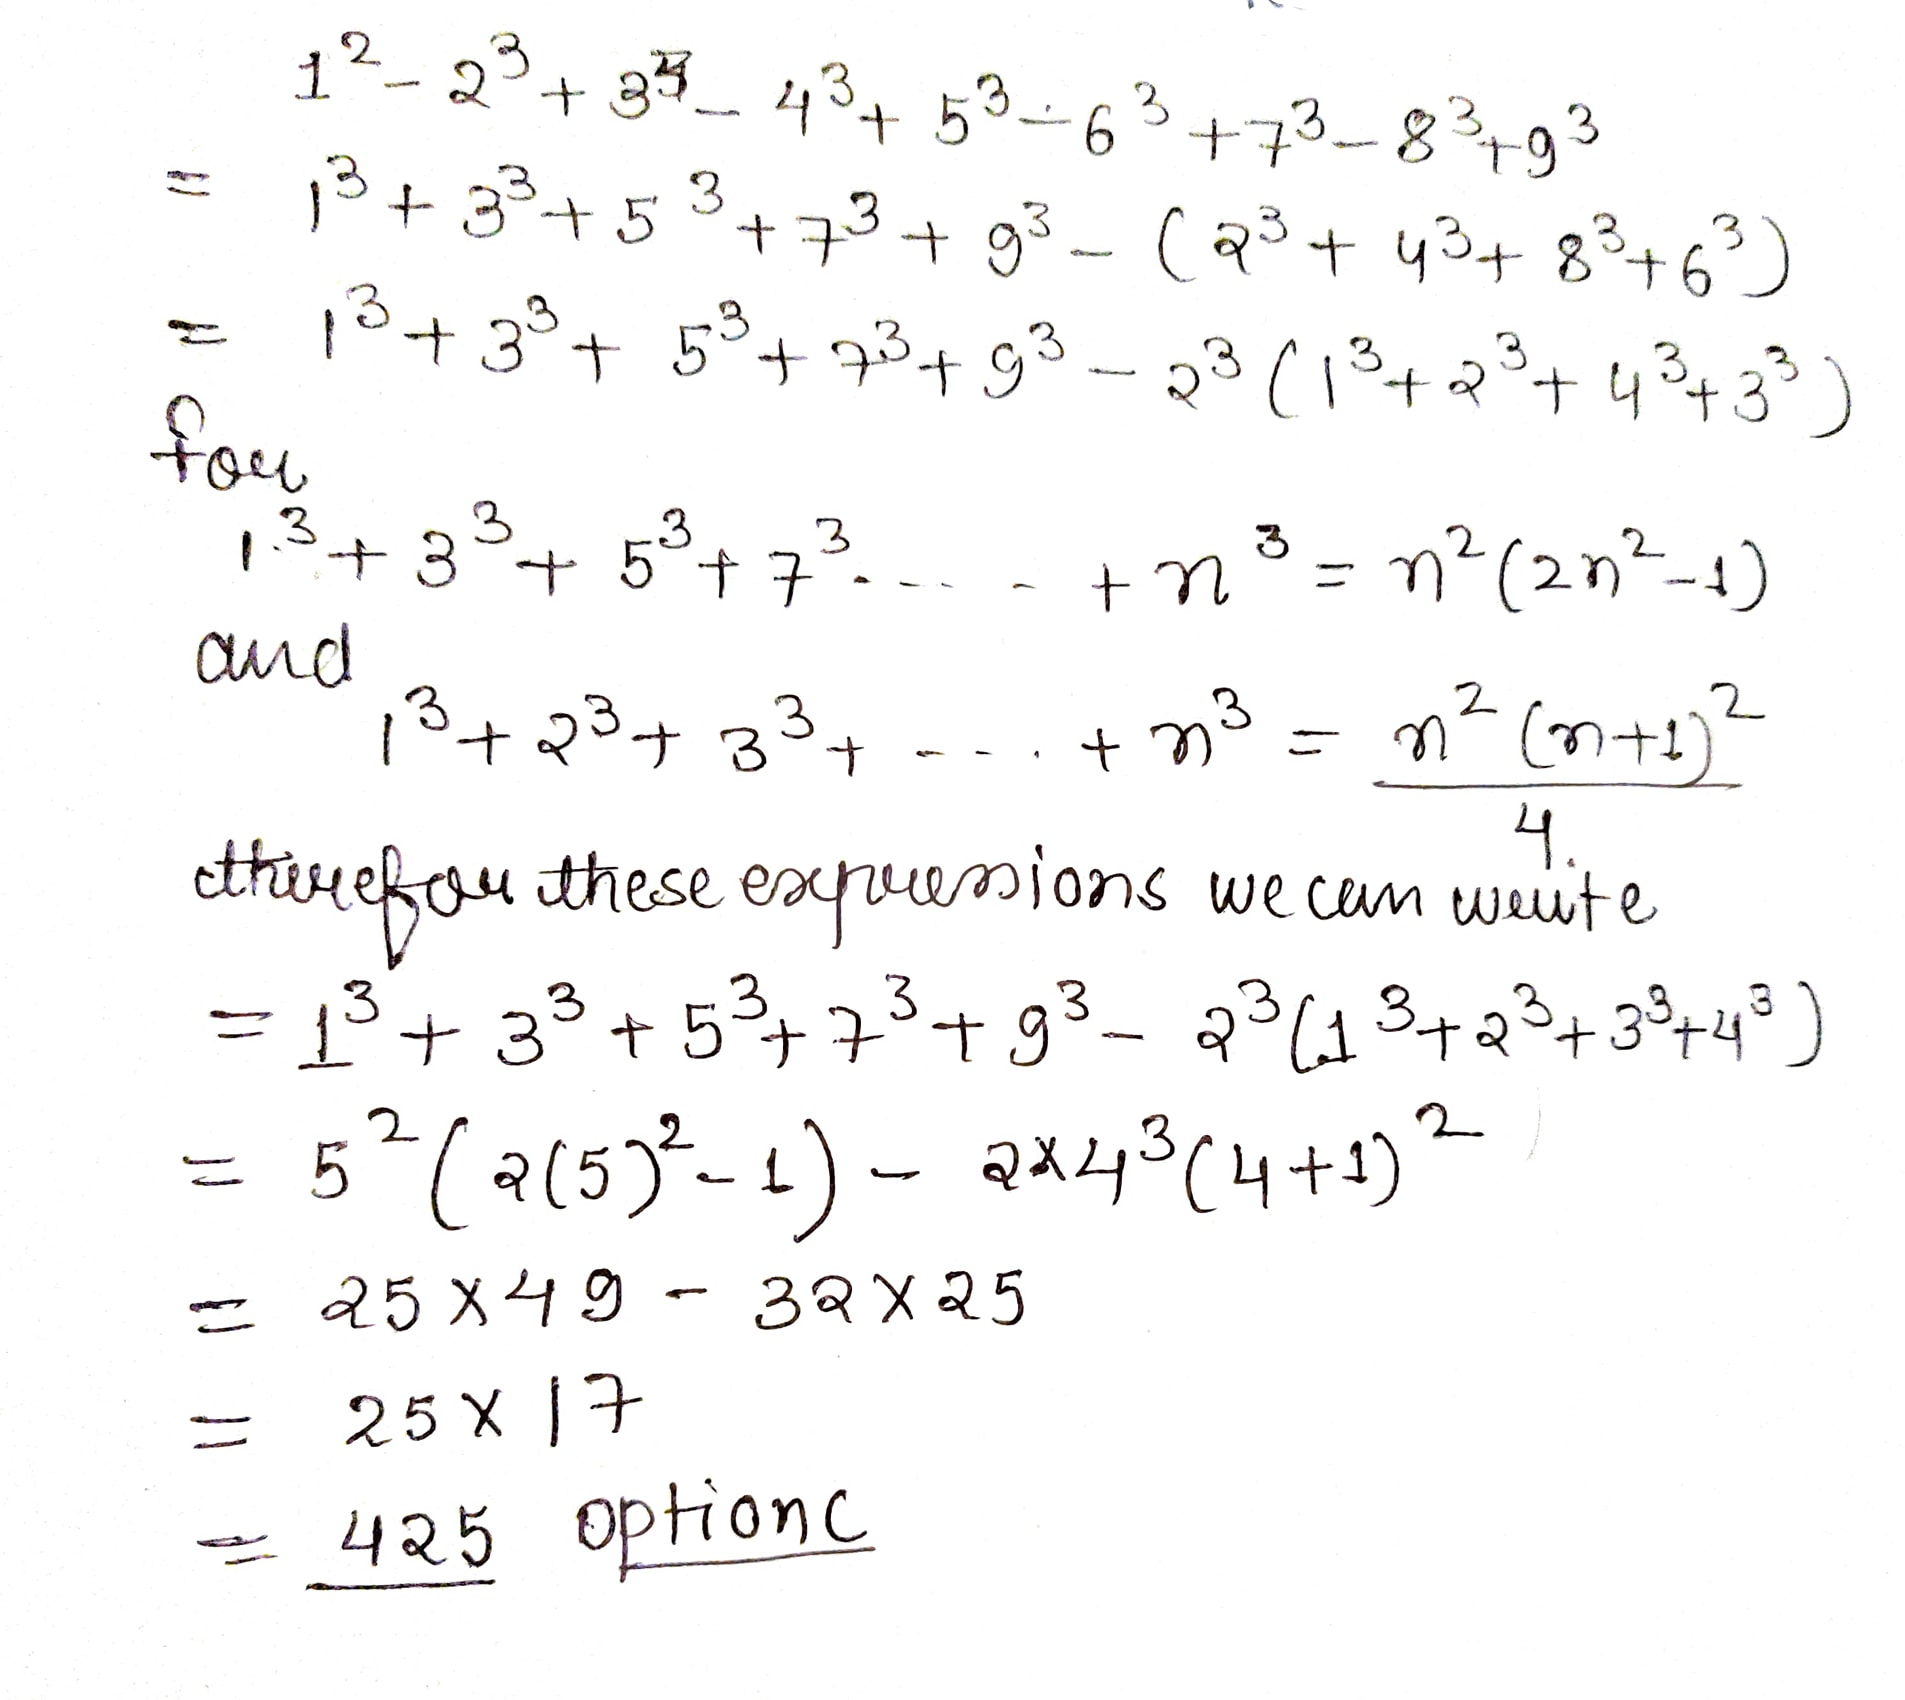 1² - 2³ + 3³ - 4³ + 5³ - 6³ + 7³ - 8³ + 9³
= 1³ + 3³ + 5³ + 7³ + 9³ - (2³ + 4³ + 8³ + 6³)
= 1³ + 3³ + 5³ + 7³ + 9³ - 2³ (1³ + 2³ + 4³ + 3³)
for
1.³ + 3³ + 5³ + 7³ ..... + n³ = n² (2n² - 1)
and
1³ + 2³ + 3³ + .... + n³ = n² (n+1)² / 4.
therefor these expressions we can write
= 1³ + 3³ + 5³ + 7³ + 9³ - 2³ (1³ + 2³ + 3³ + 4³)
= 5² (2(5)² - 1) - 2×4³ (4+1)²
= 25 × 49 - 32 × 25
= 25 × 17
= 425 option c